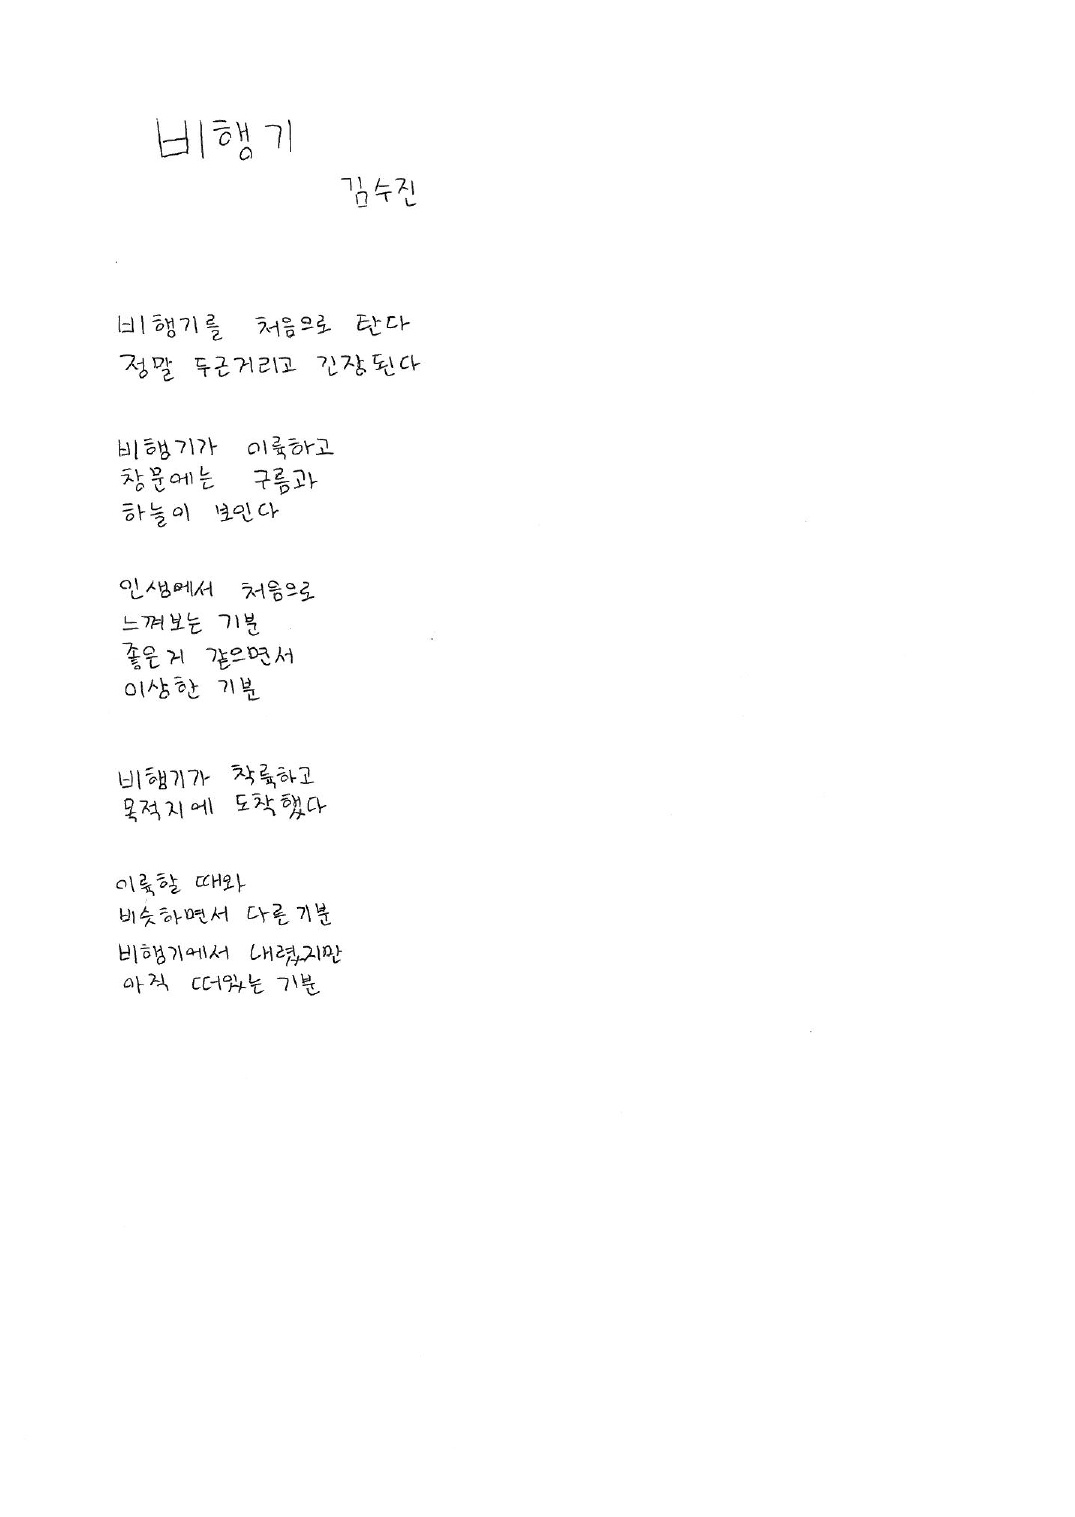 비행기
김수진
비행기를 처음으로 탄다
정말 두근거리고 긴장된다
비행기가 이륙하고
창문에는 구름과
하늘이 보인다
인생에서 처음으로
느껴보는 기분
좋은거 같으면서
이상한 기분
비행기가 착륙하고
목적지에 도착했다
이륙할 때와
비슷하면서 다른 기분
비행기에서 내렸지만
아직 떠있는 기분